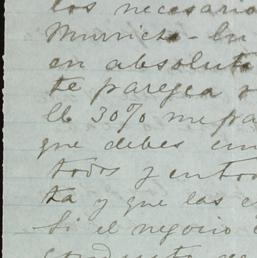 los necesario
Munich - Lu
en absolut
te parezca
ll 30% me pa
que debes em
todos y entro
ta y que las e
Si el negocio